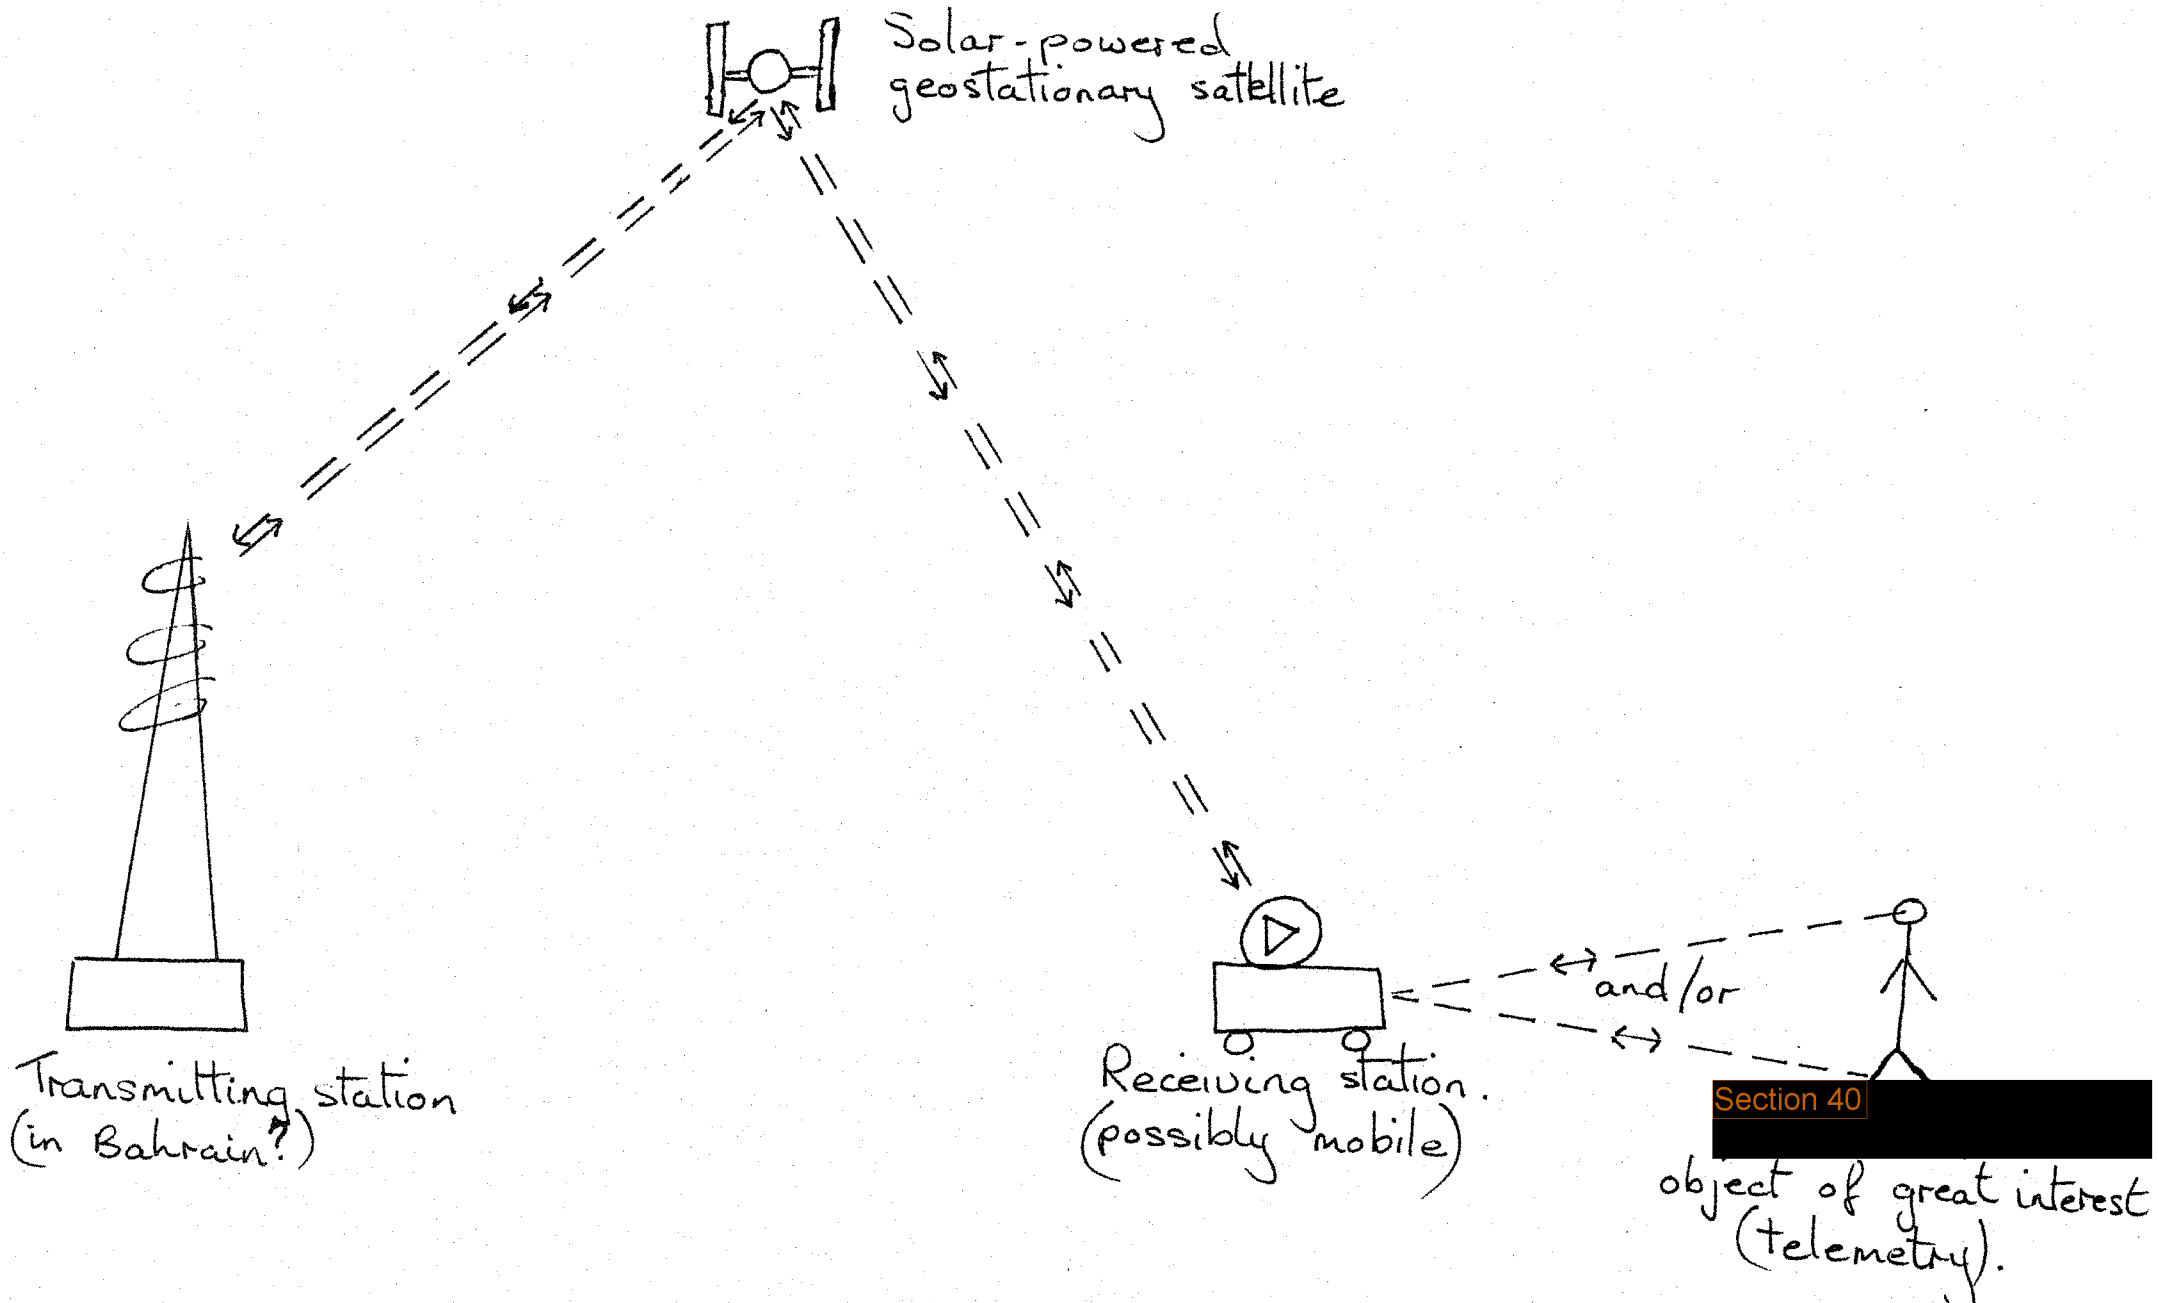 Solar-powered
geostationary satellite
and/or
Transmitting station
(in Bahrain?)
Receiving station.
(possibly mobile)
Section 40
object of great interest
(telemetry).